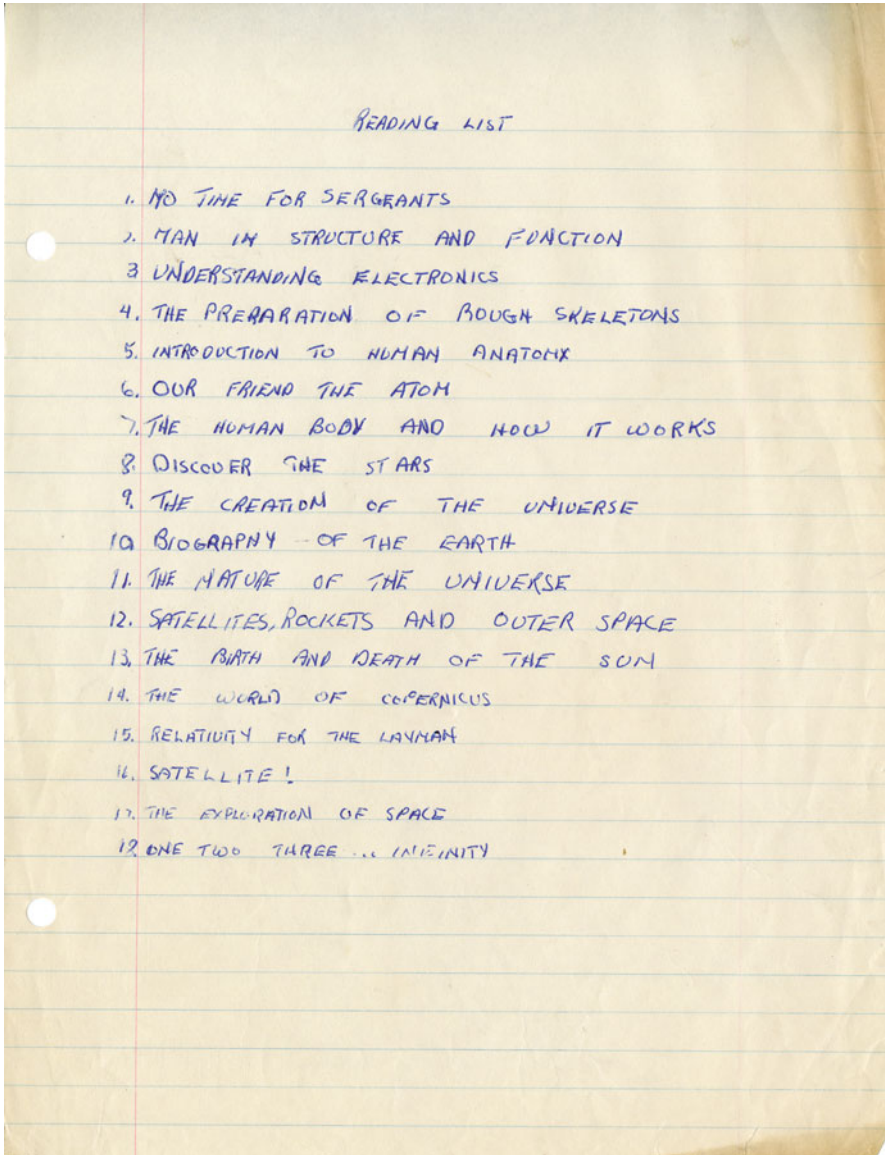 READING LIST
1. NO TIME FOR SERGEANTS
2. MAN IN STRUCTURE AND FUNCTION
3 UNDERSTANDING ELECTRONICS
4. THE PREPARATION OF ROUGH SKELETONS
5. INTRODUCTION TO HUMAN ANATOMY
6. OUR FRIEND THE ATOM
7. THE HUMAN BODY AND HOW IT WORKS
8. DISCOVER THE STARS
9. THE CREATION OF THE UNIVERSE
10 BIOGRAPHY OF THE EARTH
11. THE NATURE OF THE UNIVERSE
12. SATELLITES, ROCKETS AND OUTER SPACE
13. THE BIRTH AND DEATH OF THE SUN
14. THE WORLD OF COPERNICUS
15. RELATIVITY FOR THE LAYMAN
16. SATELLITE!
17. THE EXPLORATION OF SPACE
18 ONE TWO THREE ... INFINITY